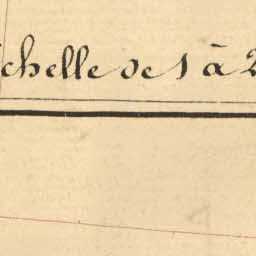 chelle de 1 à 2